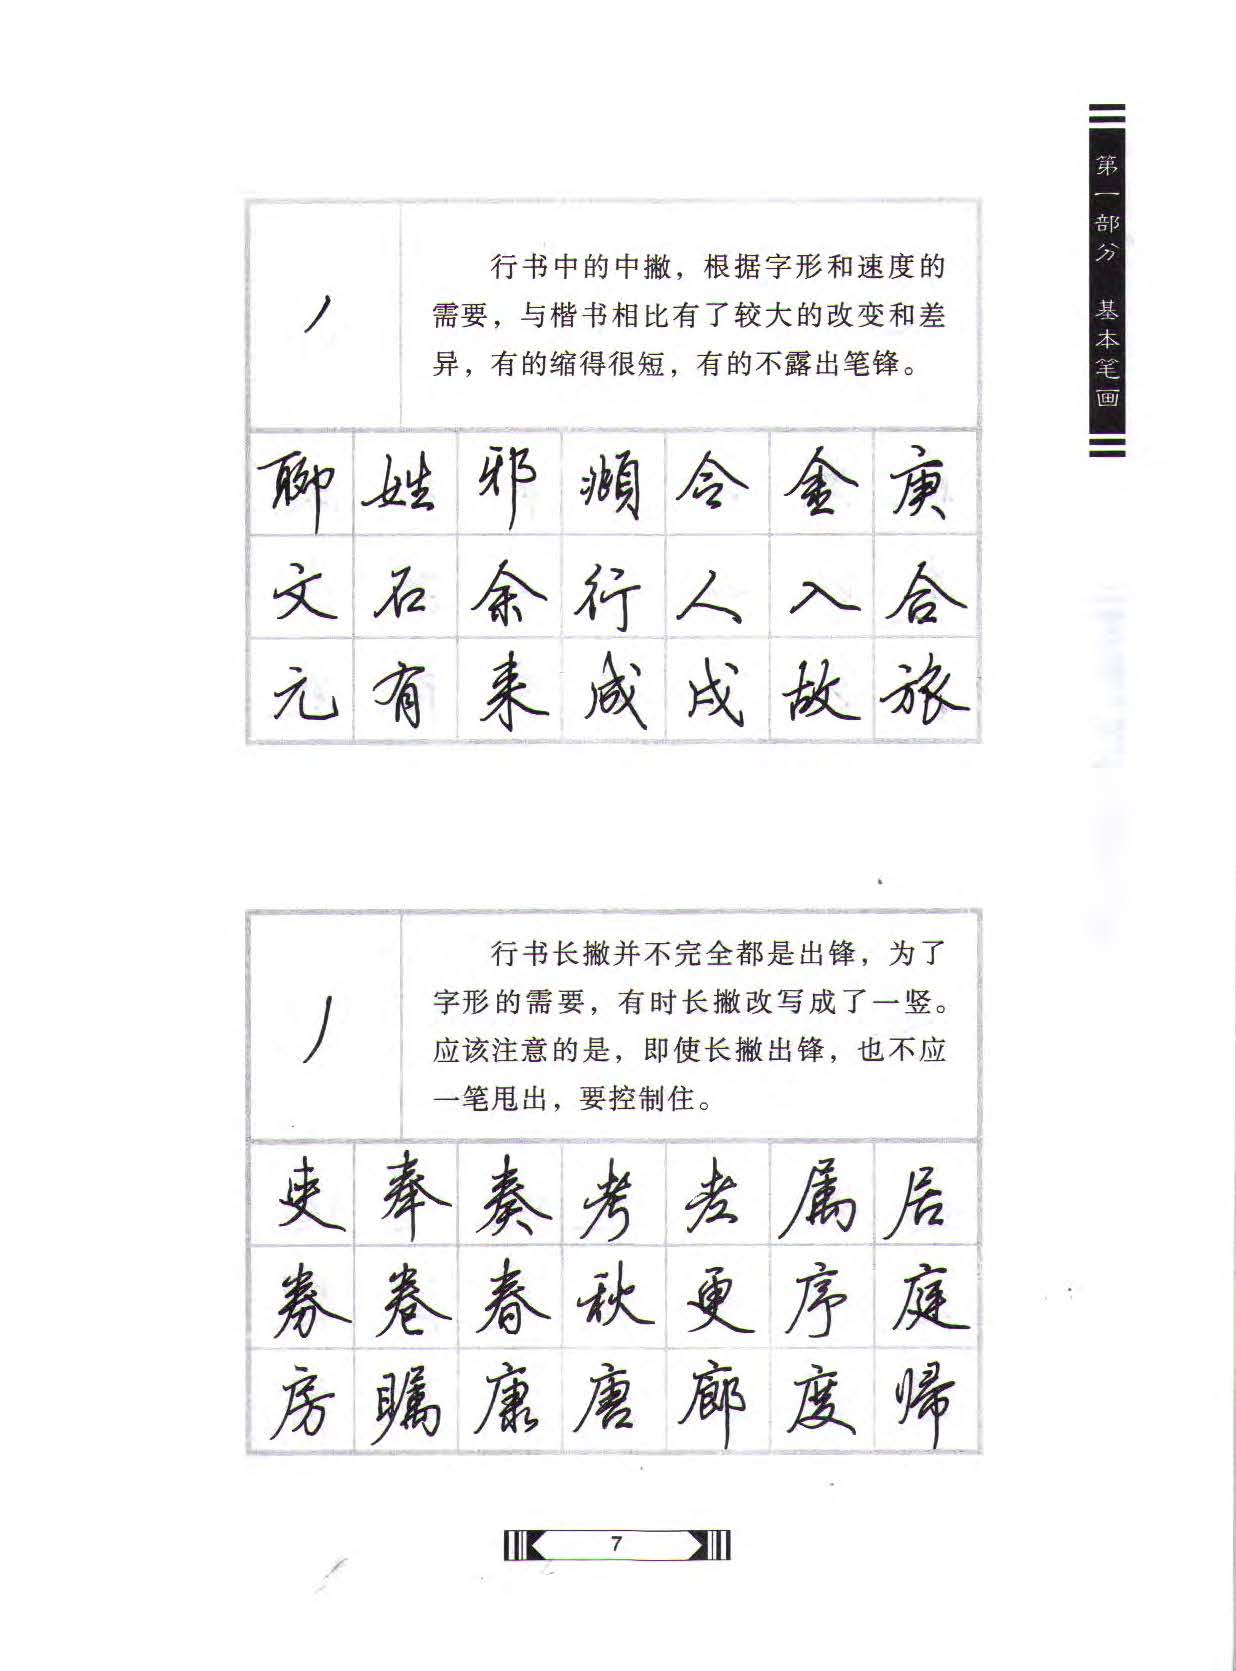 第一部分 基本笔画
行书中的中撇，根据字形和速度的
需要，与楷书相比有了较大的改变和差
异，有的缩得很短，有的不露出笔锋。
聊 姓 邪 金 庚
文 石 余 行 人 入 合
元 有 来 咸 故 旅
行书长撇并不完全都是出锋，为了
字形的需要，有时长撇改写成了一竖。
应该注意的是，即使长撇出锋，也不应
一笔甩出，要控制住。
吏 奉 奏 考 老 属 居
券 卷 春 秋 更 序 庭
房 瞩 康 唐 廊 度 帰
7